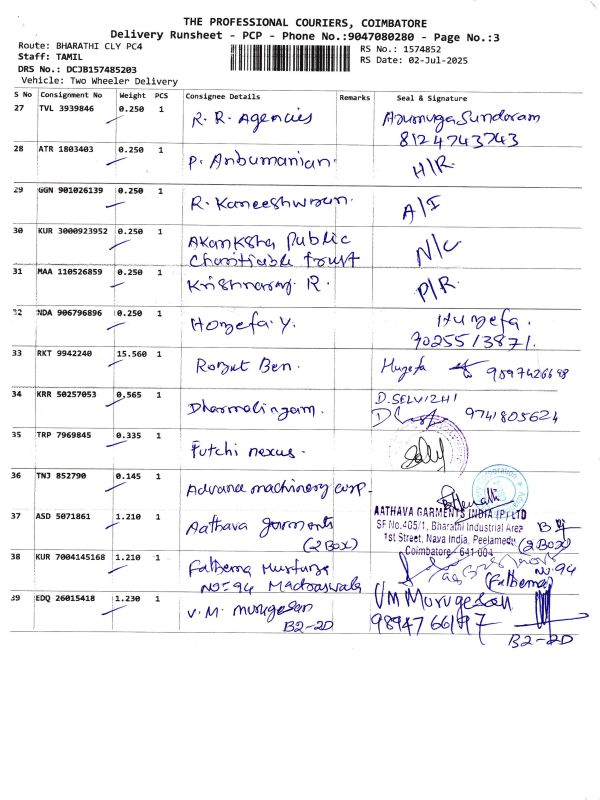 THE PROFESSIONAL COURIERS, COIMBATORE
Delivery Runsheet - PCP - Phone No.:9047080280 - Page No.:3
Route: BHARATHI CLY PC4
RS No.: 1574852
Staff: TAMIL
RS Date: 02-Jul-2025
DRS No.: DCJB157485203
Vehicle: Two Wheeler Delivery
S No Consignment No Weight PCS Consignee Details Remarks Seal & Signature
27 TVL 3939846 0.250 1 R. R. Agencies ArumugaSundaram
8124743743
28 ATR 1803403 0.250 1 P. Anbumanian. H/R.
29 GGN 901026139 0.250 1 R. Kaneeshwaran. A/I
30 KUR 3000923952 0.250 1 Akanksha Public N/C
Charitiable trust
31 MAA 110526859 0.250 1 Krishnaraj R. P/R.
32 NDA 906796896 0.250 1 Hozefa Y. Huzefa.
9025513871.
33 RKT 9942240 15.560 1 Ben. Huzefa
34 KRR 50257053 0.565 1 Dharmalingam. D.SELVIZHI
9741805624
35 TRP 7969845 0.335 1 Futchi nexus.
36 TNJ 852790 0.145 1 Advana machinery corp.
37 ASD 5071861 1.210 1 Aathava garments
(2 BOX)
AATHAVA GARMENTS INDIA (P) LTD
SF No.405/1, Bharathi Industrial Area
1st Street, Nava India, Peelamedu
Coimbatore - 641 004
(2 BOX)
38 KUR 7004145168 1.210 1 Fathema Murtuza
No:-94 Madraswala
No:-94
(Fathema)
39 EDQ 26015418 1.230 1 V. M. murugesan VM Murugesan
B2-2D
98947 66197
B2-2D